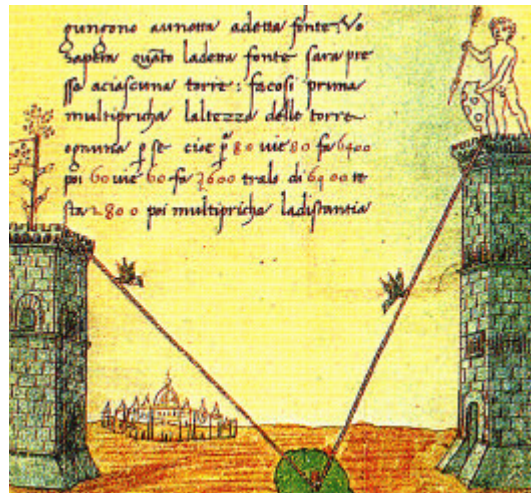 gungono aunotta adetta fonte. Vo
sapera quāto ladetta fonte sara pre
sso aciascuna torre: facosi pruma
multipricha laltezza delle torre
ognuna p̄ se cioe p̄ 80 uie 80 fa 6400
poi 60 uie 60 fa 3600 tralo di 6400 re
sta 2800 poi multipricha ladistantia